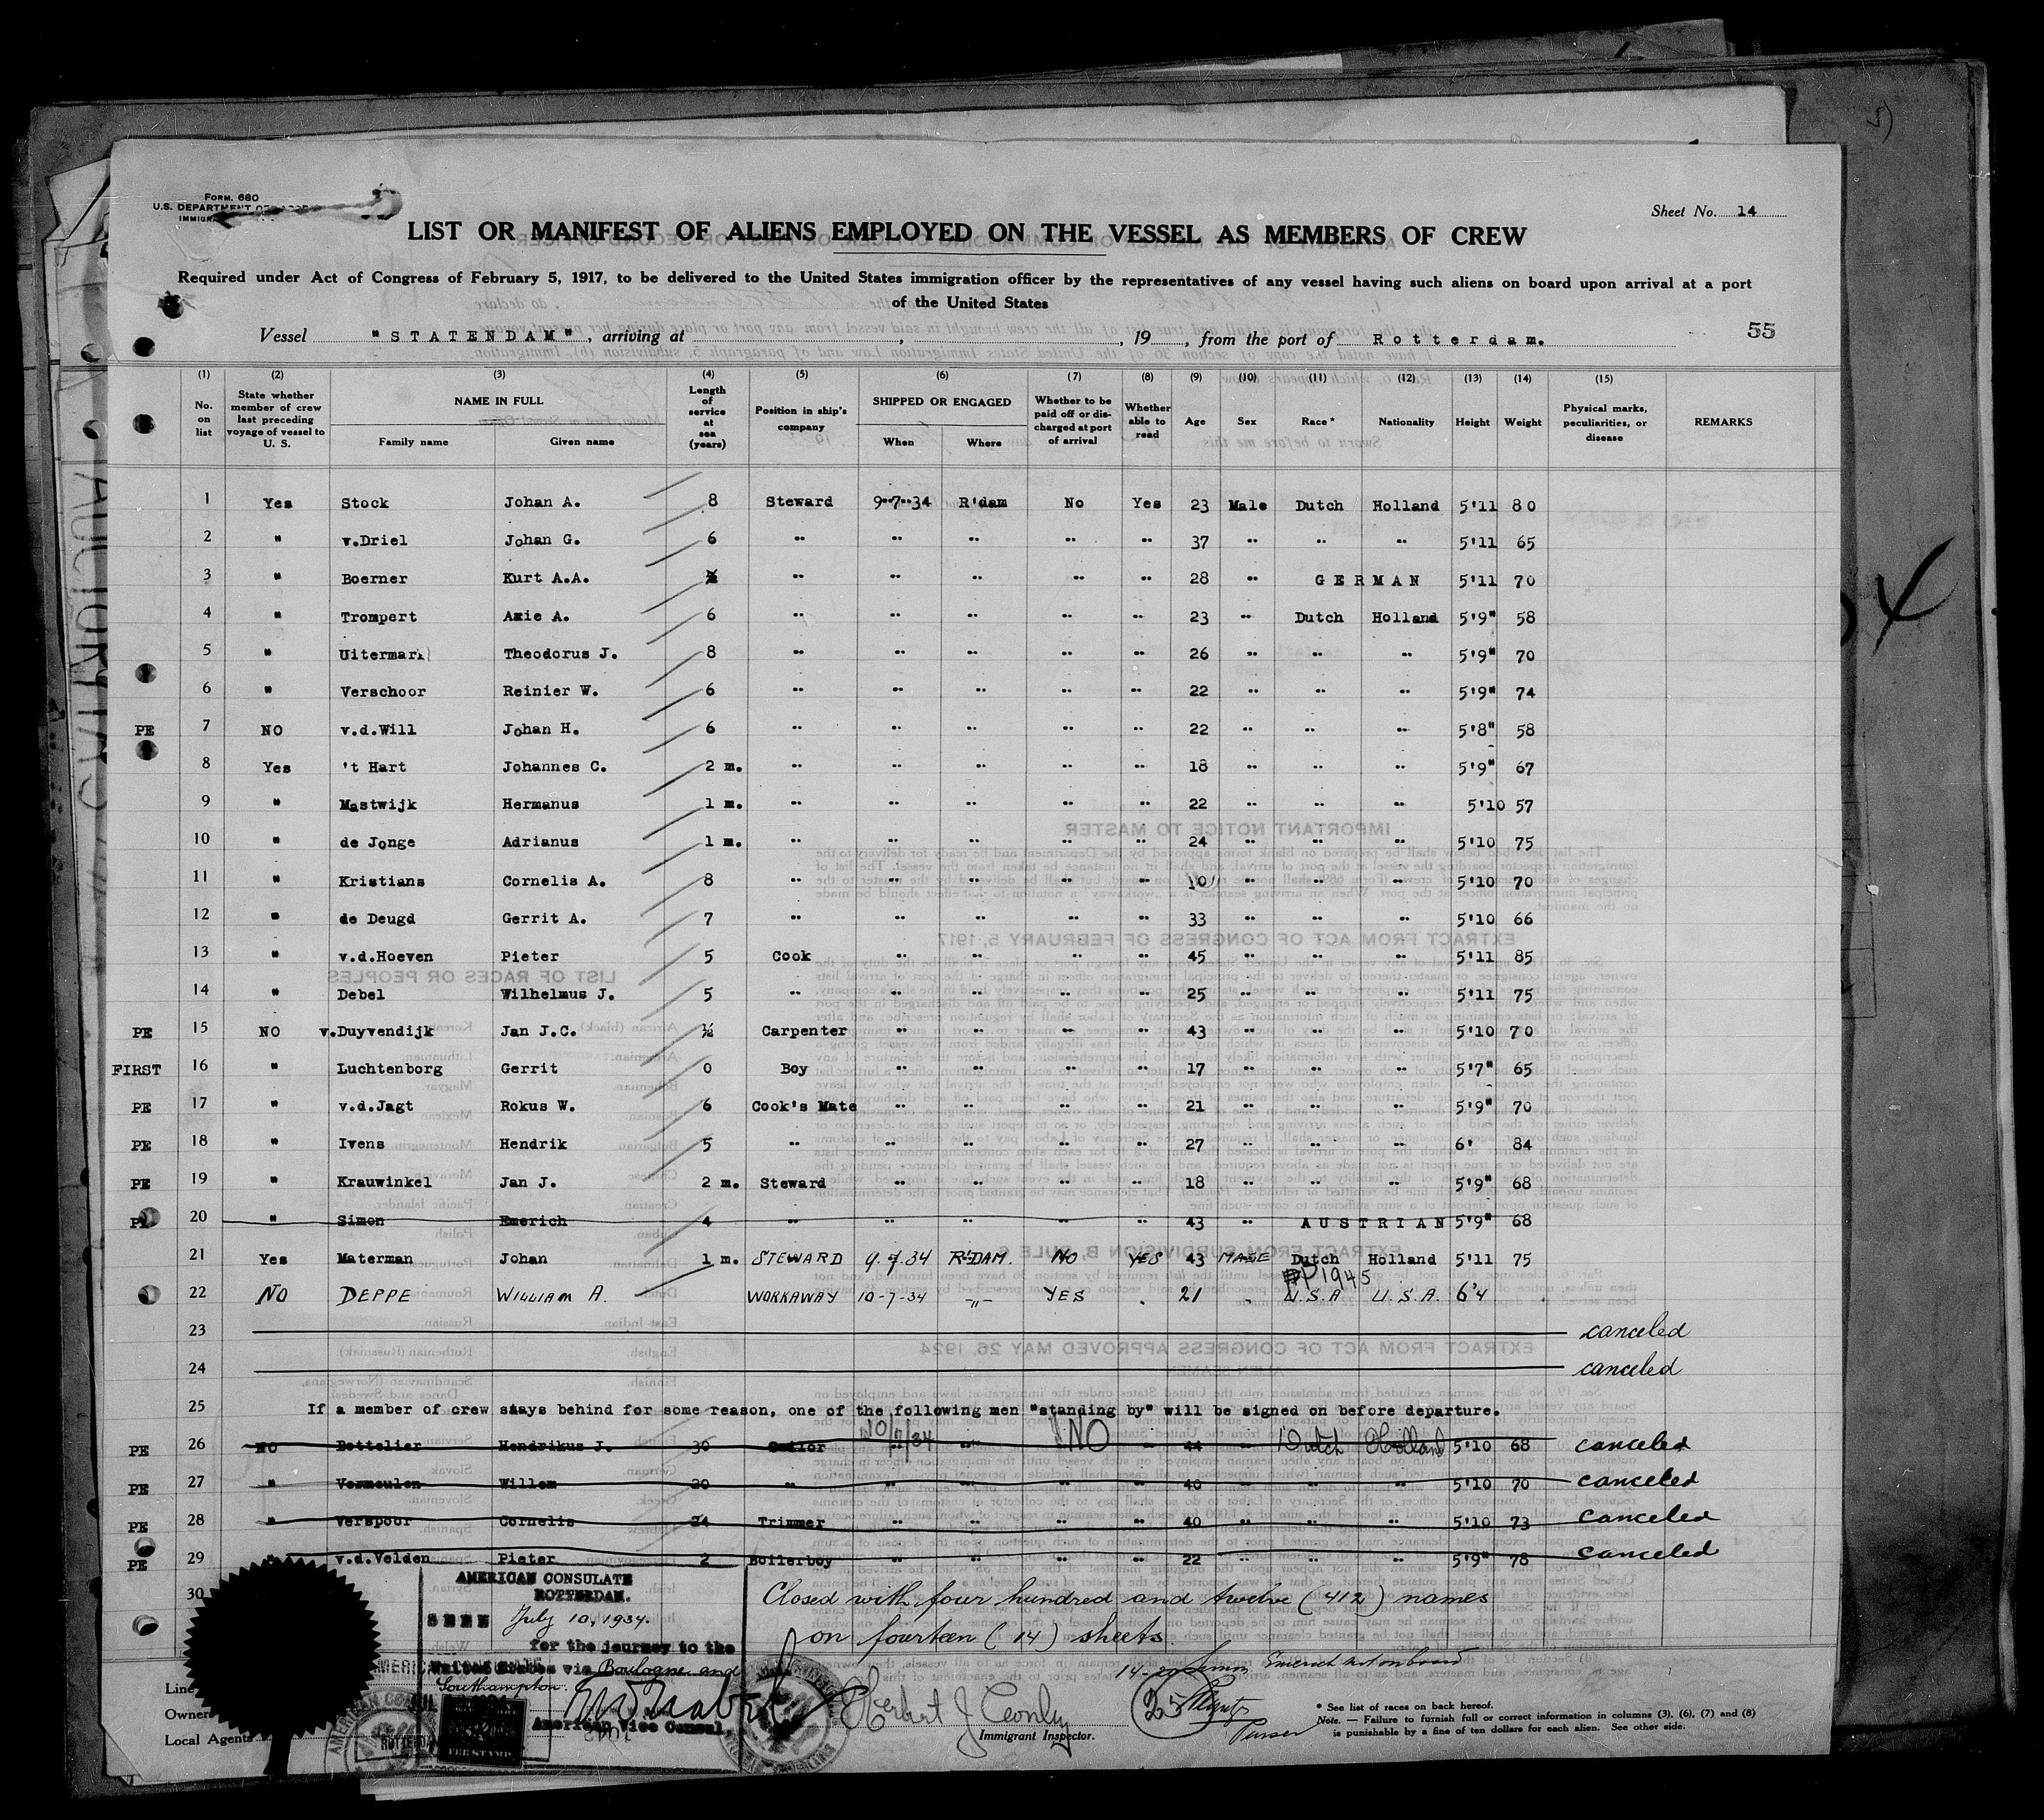 FORM. 680
U.S. DEPARTMENT OF
Sheet No. 14
LIST OR MANIFEST OF ALIENS EMPLOYED ON THE VESSEL AS MEMBERS OF CREW
Required under Act of Congress of February 5, 1917, to be delivered to the United States immigration officer by the representatives of any vessel having such aliens on board upon arrival at a port
of the United States
55
Vessel "STATENDAM", arriving at , , 19 , from the port of Rotterdam.
(1) (2) (3) (4) (5) (6) (7) (8) (9) (10) (11) (12) (13) (14) (15)
No. on list State whether member of crew last preceding voyage of vessel to U. S. NAME IN FULL Family name Given name Length of service at sea (years) Position in ship's company SHIPPED OR ENGAGED When Where Whether to be paid off or discharged at port of arrival Whether able to read Age Sex Race* Nationality Height Weight Physical marks, peculiarities, or disease REMARKS
1 Yes Stock Johan A. 8 Steward 9-7-34 R'dam No Yes 23 Male Dutch Holland 5'11 80
2 " v.Driel Johan G. 6 " " " " " 37 " " " 5'11 65
3 " Boerner Kurt A.A. " " " " " 28 " GERMAN 5'11 70
4 " Trompert Arie A. 6 " " " " " 23 " Dutch Holland 5'9" 58
5 " Uitermark Theodorus J. 8 " " " " " 26 " " " 5'9" 70
6 " Verschoor Reinier W. 6 " " " " " 22 " " " 5'9" 74
PE 7 NO v.d.Will Johan H. 6 " " " " " 22 " " " 5'8" 58
8 Yes 't Hart Johannes C. 2 m. " " " " " 18 " " " 5'9" 67
9 " Mastwijk Hermanus 1 m. " " " " " 22 " " " 5'10 57
10 " de Jonge Adrianus 1 m. " " " " " 24 " " " 5'10 75
11 " Kristians Cornelis A. 8 " " " " " " " " 5'10 70
12 " de Deugd Gerrit A. 7 " " " " " 33 " " " 5'10 66
13 " v.d.Hoeven Pieter 5 Cook " " " " 45 " " " 5'11 85
14 " Debel Wilhelmus J. 5 " " " " " 25 " " " 5'11 75
PE 15 NO v.Duyvendijk Jan J.C. ½ Carpenter " " " " 43 " " " 5'10 70
FIRST 16 " Luchtenborg Gerrit 0 Boy " " " " 17 " " " 5'7" 65
PE 17 " v.d.Jagt Rokus W. 6 Cook's Mate " " " " 21 " " " 5'9" 70
PE 18 " Ivens Hendrik 5 " " " " " 27 " " " 6' 84
PE 19 " Krauwinkel Jan J. 2 m. Steward " " " " 18 " " " 5'9" 68
20 " Simon Emerich 4 " " " " " 43 " AUSTRIAN 5'9" 68
21 Yes Materman Johan 1 m. STEWARD 9.7.34 R'DAM. NO YES 43 MALE Dutch Holland 5'11 75
PP1945
22 NO DEPPE WILLIAM A. WORKAWAY 10-7-34 -"- YES " 21 " U.S.A U.S.A. 6'4
23 canceled
24 canceled
25 If a member of crew stays behind for some reason, one of the following men "standing by" will be signed on before departure.
PE 26 NO Bottelier Hendrikus J. 30 Sailor 10/7/34 " NO " 44 " Dutch Holland 5'10 68 canceled
PE 27 " Vermeulen Willem 20 " " " " " 40 " " " 5'10 70 canceled
PE 28 " Verspoor Cornelis 24 Trimmer " " " " 40 " " " 5'10 73 canceled
PE 29 " v.d.Velden Pieter 2 Boilerboy " " " " 22 " " " 5'9" 78 canceled
30
AMERICAN CONSULATE
ROTTERDAM.
SEEN July 10, 1934.
for the journey to the
United States via Boulogne and
Southampton.
American Vice Consul.
Closed with four hundred and twelve (412) names
on fourteen (14) sheets.
14-20 Simon Emerich not on board
Line
Owners
Local Agents
Herbert J. Conley
Immigrant Inspector.
Purser
* See list of races on back hereof.
Note. — Failure to furnish full or correct information in columns (3), (6), (7) and (8)
is punishable by a fine of ten dollars for each alien. See other side.